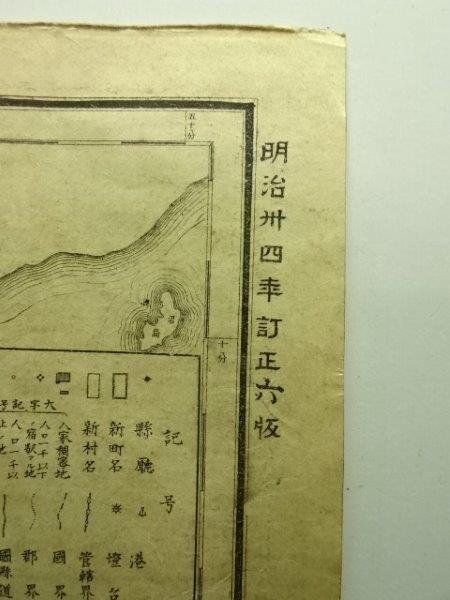 明治卅四年訂正六版
五十分
十分
記号
縣廳
新町名
新村名
人家稠密地
人口一千以下
人口一千以上
大字記号
港
燈台
管轄界
國界
郡界
國縣道